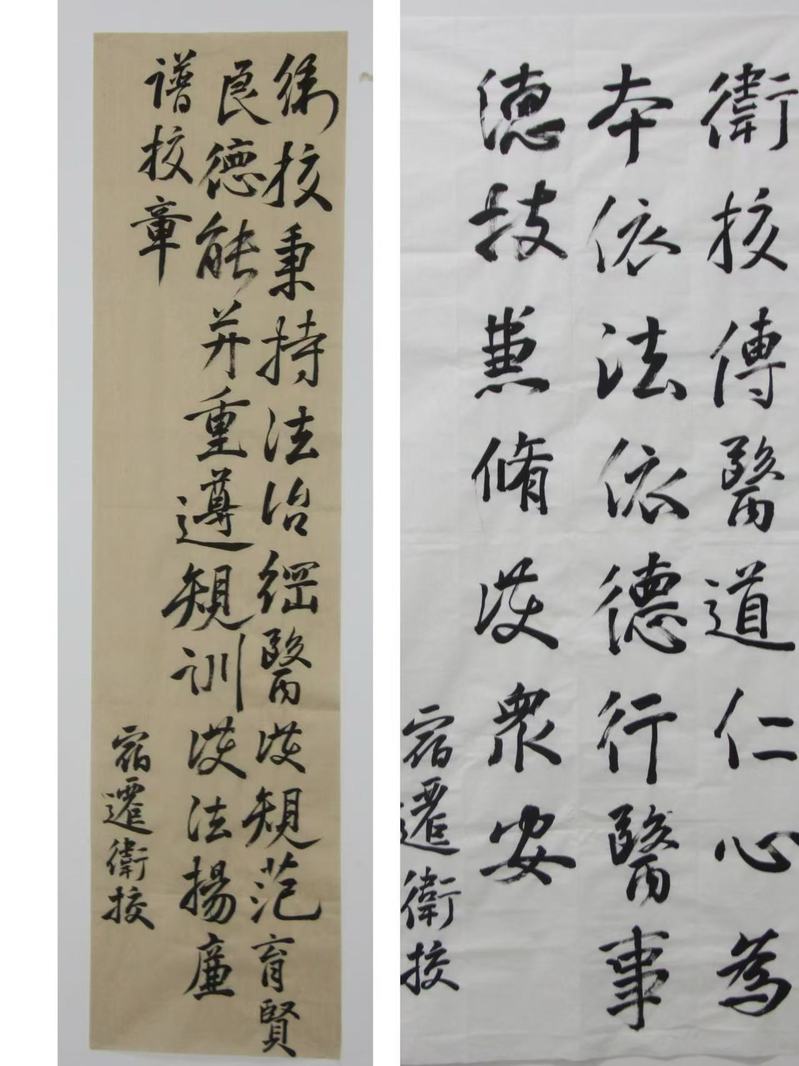 衛校秉持法治綱醫護規范育賢
良德能并重遵規訓護法揚廉
譜校章
宿遷衛校
衛校傳醫道仁心為
本依法依德行醫事
德技兼修護衆安
宿遷衛校